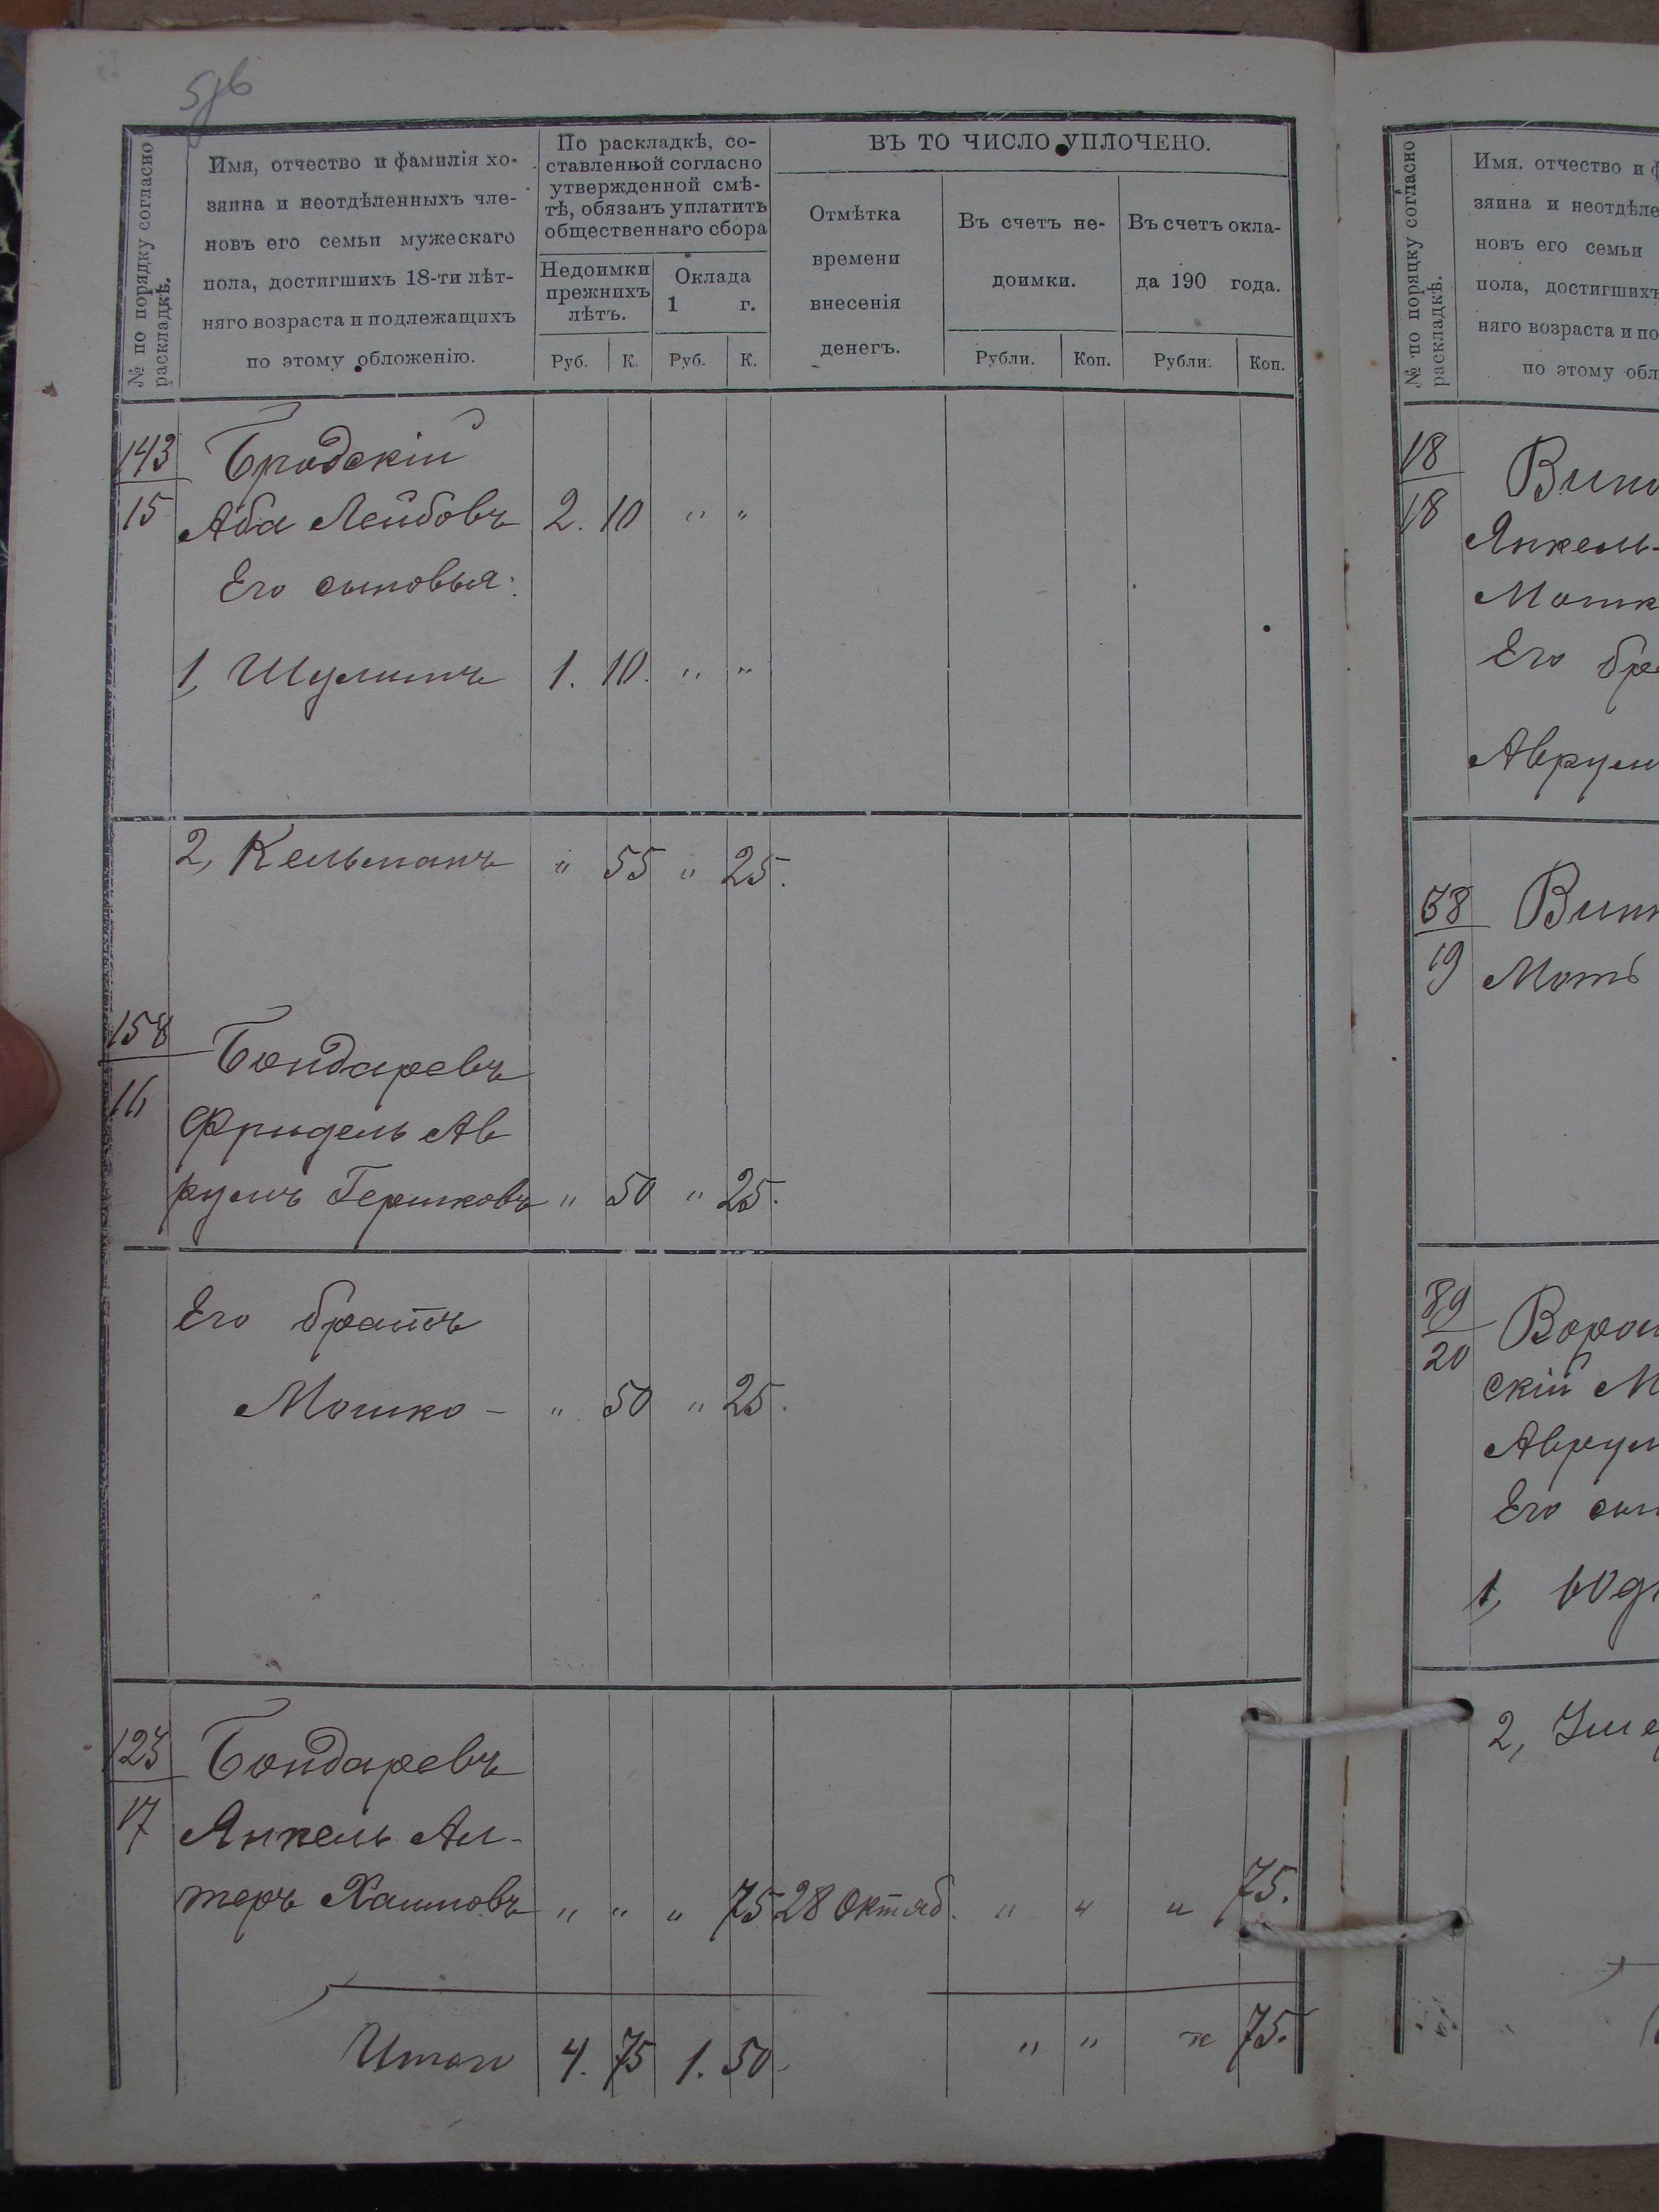 5/6
№ по порядку согласно раскладкѣ.
Имя, отчество и фамилія хо-
зяина и неотдѣленныхъ чле-
новъ его семьи мужескаго
пола, достигшихъ 18-ти лѣт-
няго возраста и подлежащихъ
по этому обложенію.
По раскладкѣ, со-
ставленной согласно
утвержденной смѣ-
тѣ, обязанъ уплатить
общественнаго сбора
Недоимки
прежнихъ
лѣтъ.
Оклада
1 г.
Руб. К. Руб. К.
ВЪ ТО ЧИСЛО УПЛОЧЕНО.
Отмѣтка
времени
внесенія
денегъ.
Въ счетъ не-
доимки.
Въ счетъ окла-
да 190 года.
Рубли. Коп. Рубли. Коп.
143 Бродскій
15 Аба Лейбовъ 2. 10 " "
Его сыновья:
1, Шулимъ 1. 10. " "
2, Кельманъ " 55 " 25.
158 Бондаревъ
16 Фридель Ав
румъ Гершковъ " 50 " 25.
Его братъ
Мошко - " 50 " 25.
123 Бондаревъ
17 Янкель Ал-
теръ Хаимовъ " " " 75 28 Октяб. " " " 75.
Итого 4. 75 1. 50. " " " 75.
№ по порядку согласно раскладкѣ.
Имя. отчество и ф
зяина и неотдѣле
новъ его семьи
пола, достигшихъ
няго возраста и по
по этому обл
18 Вин
18 Янкель-
Мошк
Его бра
Аврум
38 Винн
19 Мот
89 Ворон
20 скій М
Аврум
Его сын
1, Юд
2,